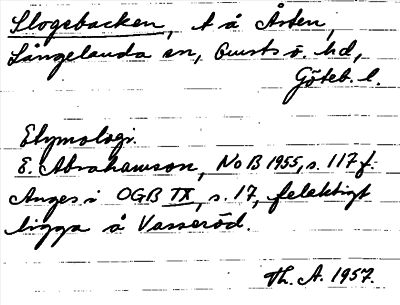 Slogsbacken, t å Åsten,
Långelanda sn, Orusts ö. hd,
Göteb. l.
Etymologi.
E. Abrahamson, NoB 1955, s. 117 f.
Anges i OGB IX, s. 17, felaktigt
ligga å Vasseröd.
Th. A. 1957.